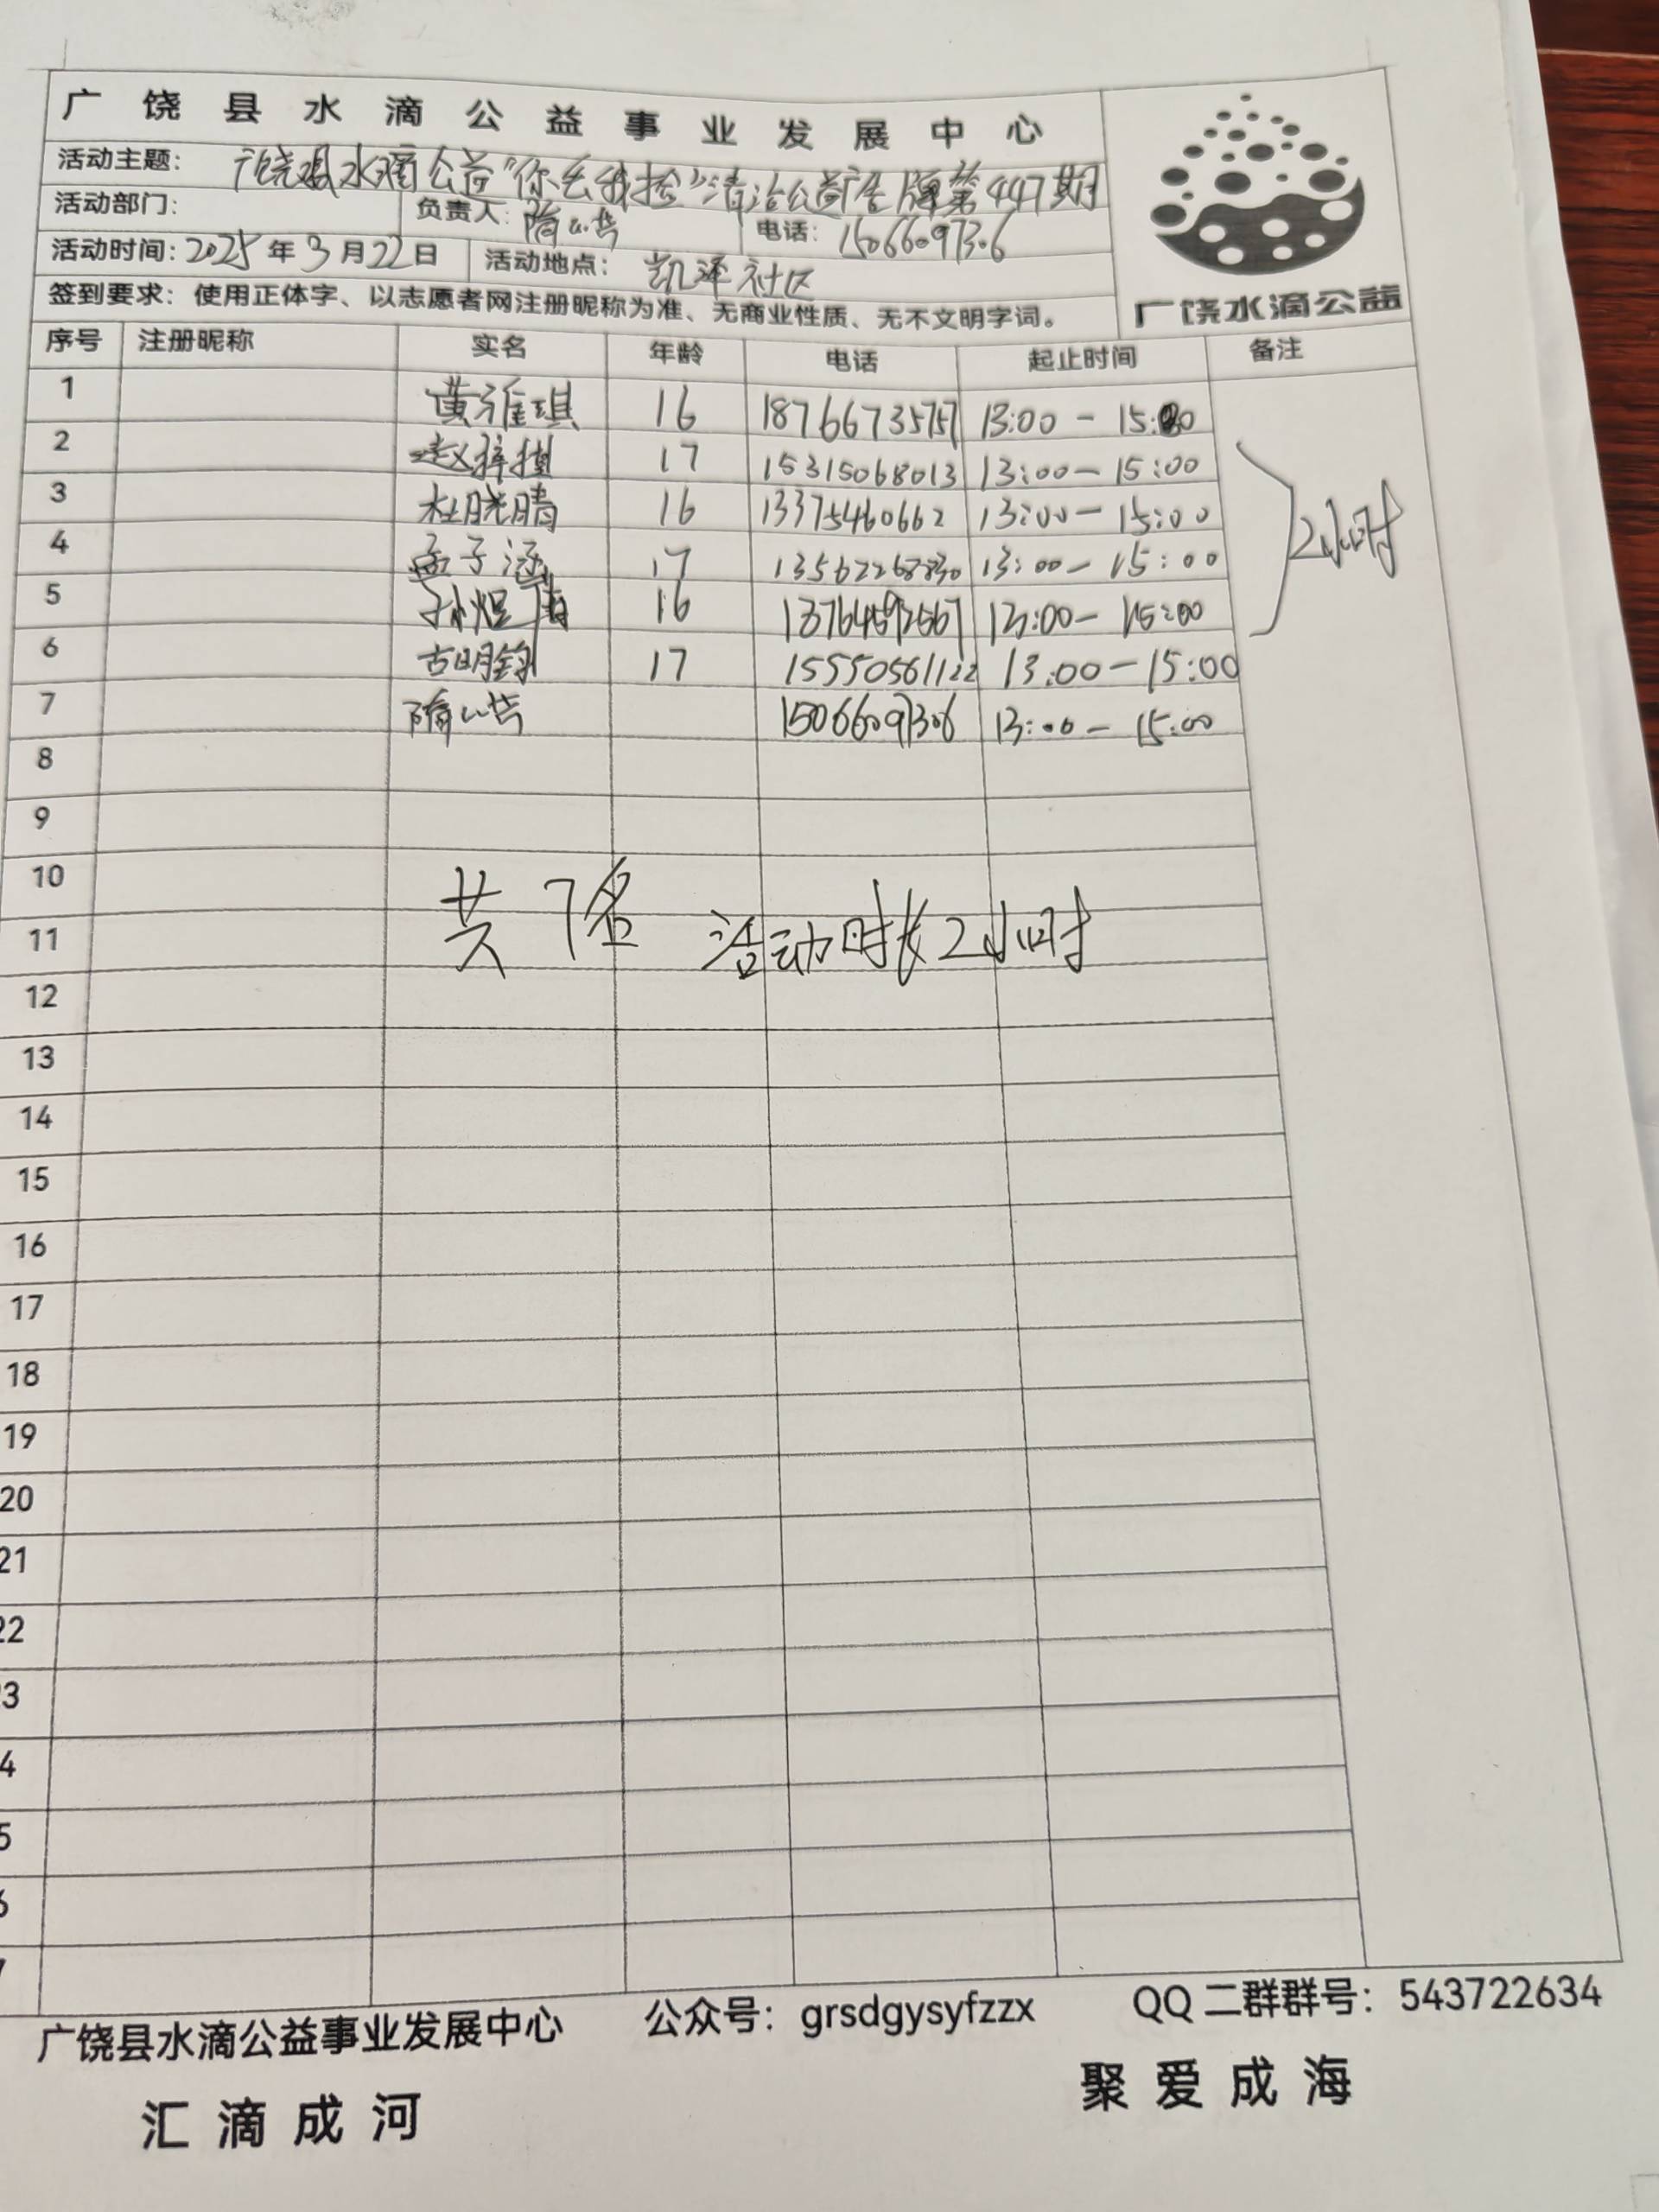 广饶县水滴公益事业发展中心
活动主题：广饶县水滴公益"你丢我捡"清洁公益广告牌第447期
活动部门： 负责人：隋 电话：15066097306
活动时间：2025年3月22日 活动地点：凯泽社区
签到要求：使用正体字、以志愿者网注册昵称为准、无商业性质、无不文明字词。
广饶水滴公益
序号 注册昵称 实名 年龄 电话 起止时间 备注
1 黄雅琪 16 18766735757 13:00 - 15:00
2 赵梓 17 15315068013 13:00 - 15:00
3 杜晓晴 16 13375460662 13:00 - 15:00
4 孟子涵 17 13:00 - 15:00
5 孙煜 16 13:00 - 15:00
2小时
6 古明 17 15550561122 13:00 - 15:00
7 隋 15066097306 13:00 - 15:00
8
9
10
共7名 活动时长2小时
11
12
13
14
15
16
17
18
19
20
21
22
3
4
5
6
7
广饶县水滴公益事业发展中心 公众号：grsdgysyfzzx QQ二群群号：543722634
汇滴成河 聚爱成海